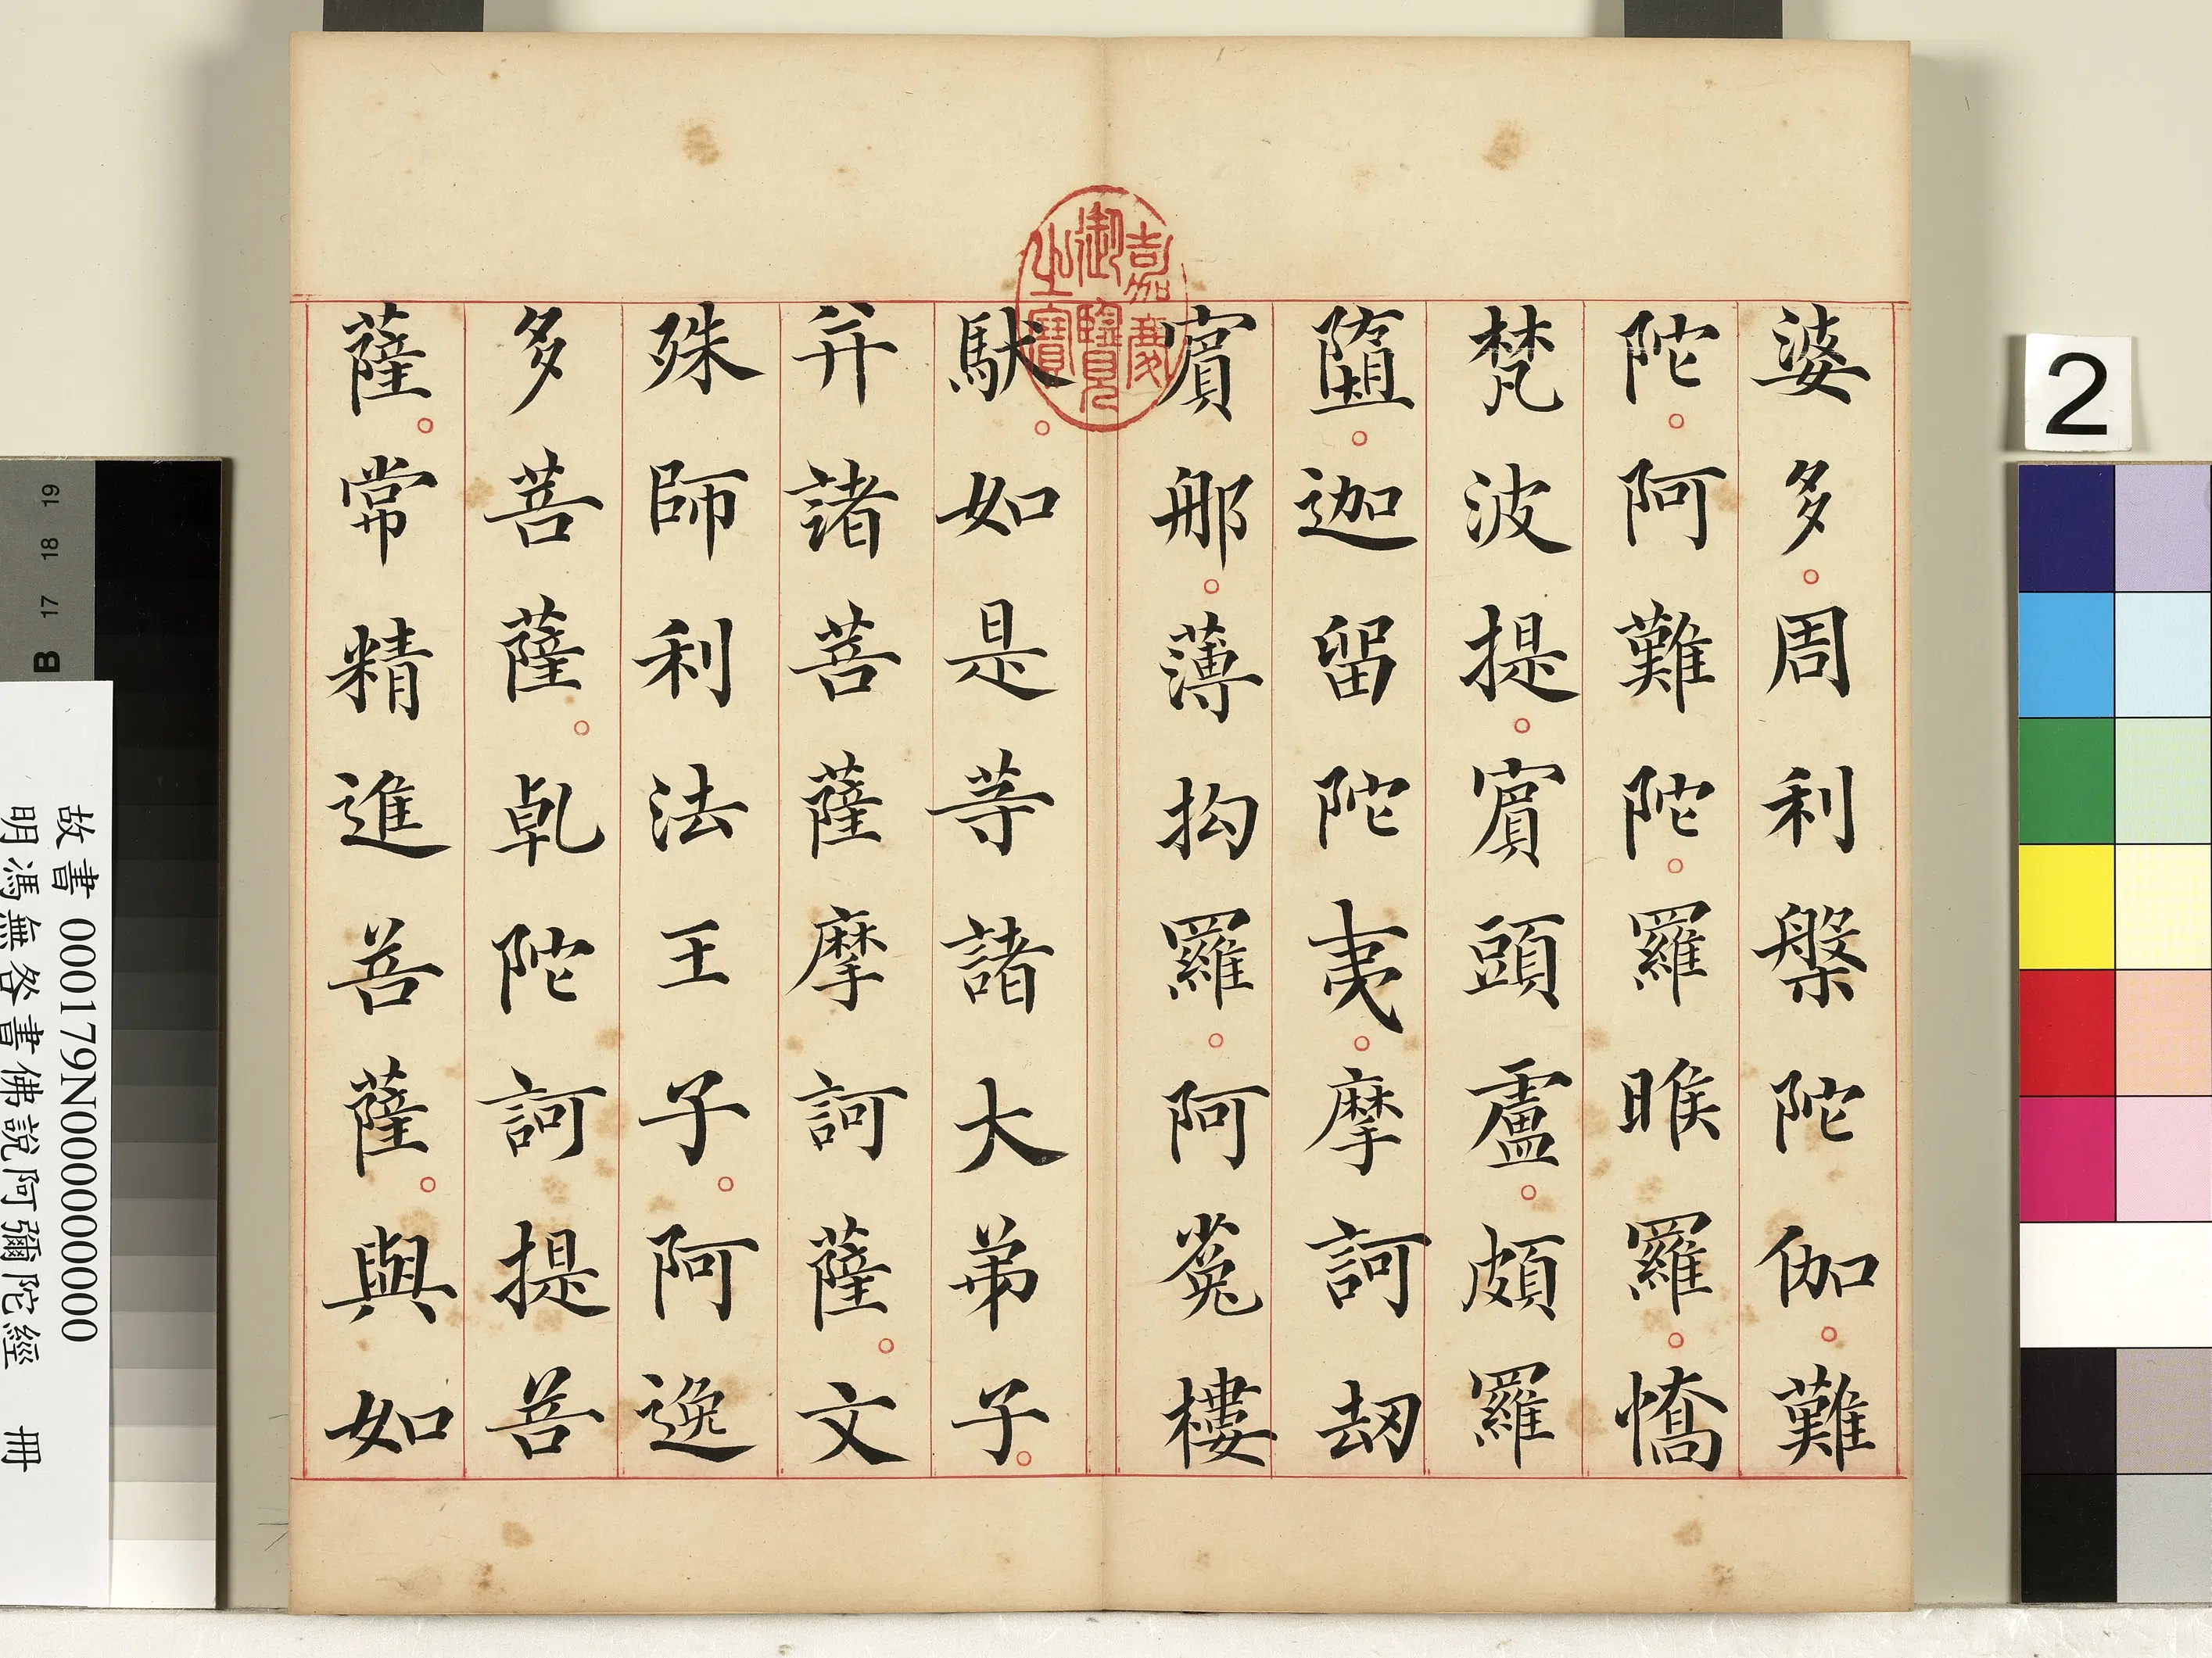 婆多。周利槃陀伽。難
陀。阿難陀。羅睺羅。憍
梵波提。賓頭盧。頗羅
墮。迦留陀夷。摩訶劫
賓那。薄拘羅。阿㝹樓
馱。如是等諸大弟子。
并諸菩薩摩訶薩。文
殊師利法王子。阿逸
多菩薩。乹陀訶提菩
薩。常精進菩薩。與如
嘉慶
御覽
之寶
2
故書 000179N000000000
明馮無咎書佛說阿彌陀經 冊
B 17 18 19